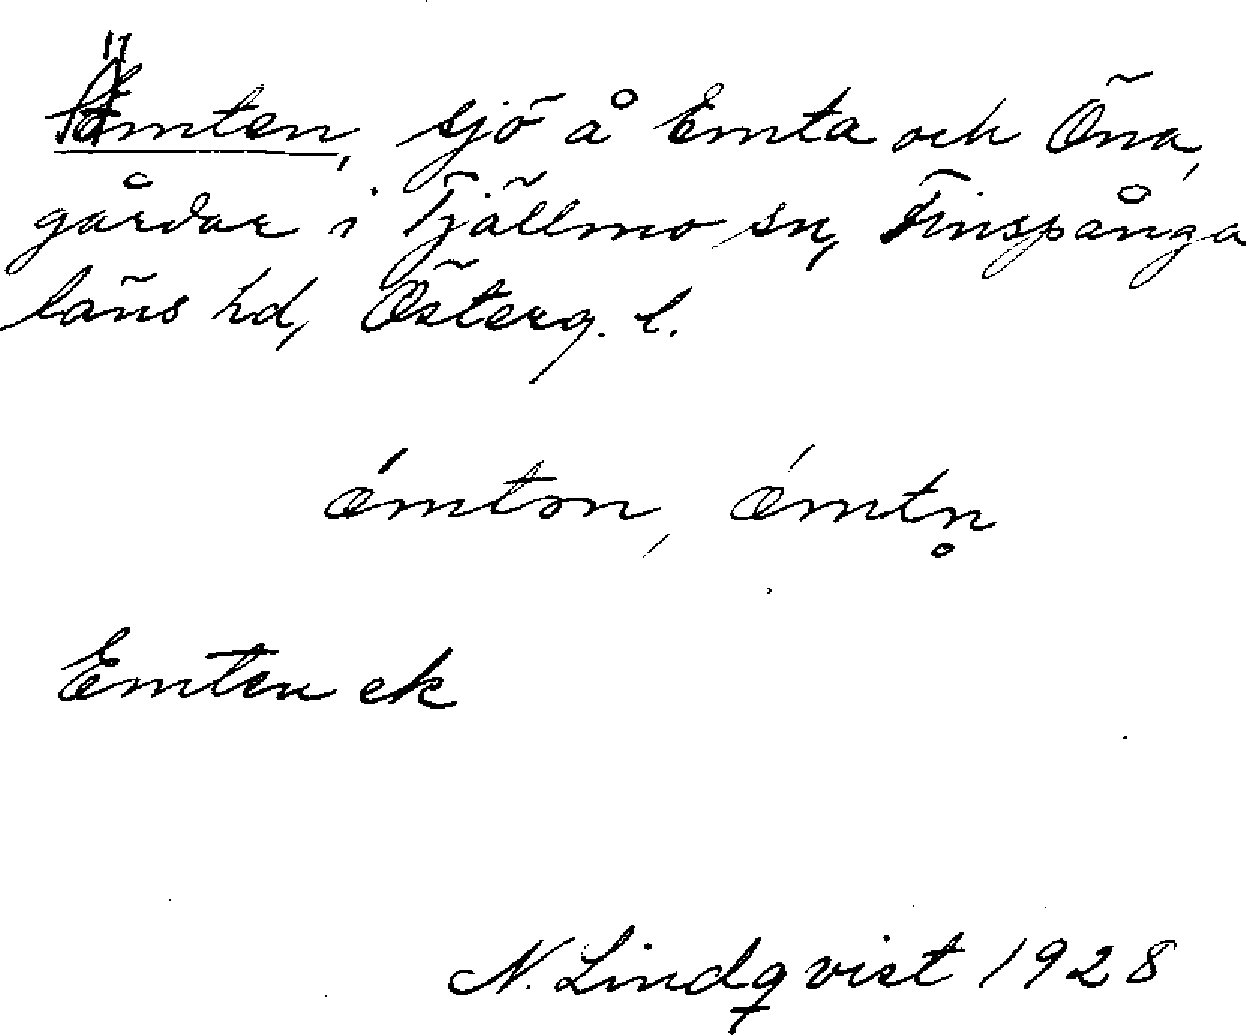 Ämten, sjö å Emta och Öna,
gårdar i Tjällmo sn, Finspånga
läns hd, Österg. l.
ǽmtən, ǽmtn̥
Emten ek
N. Lindqvist 1928